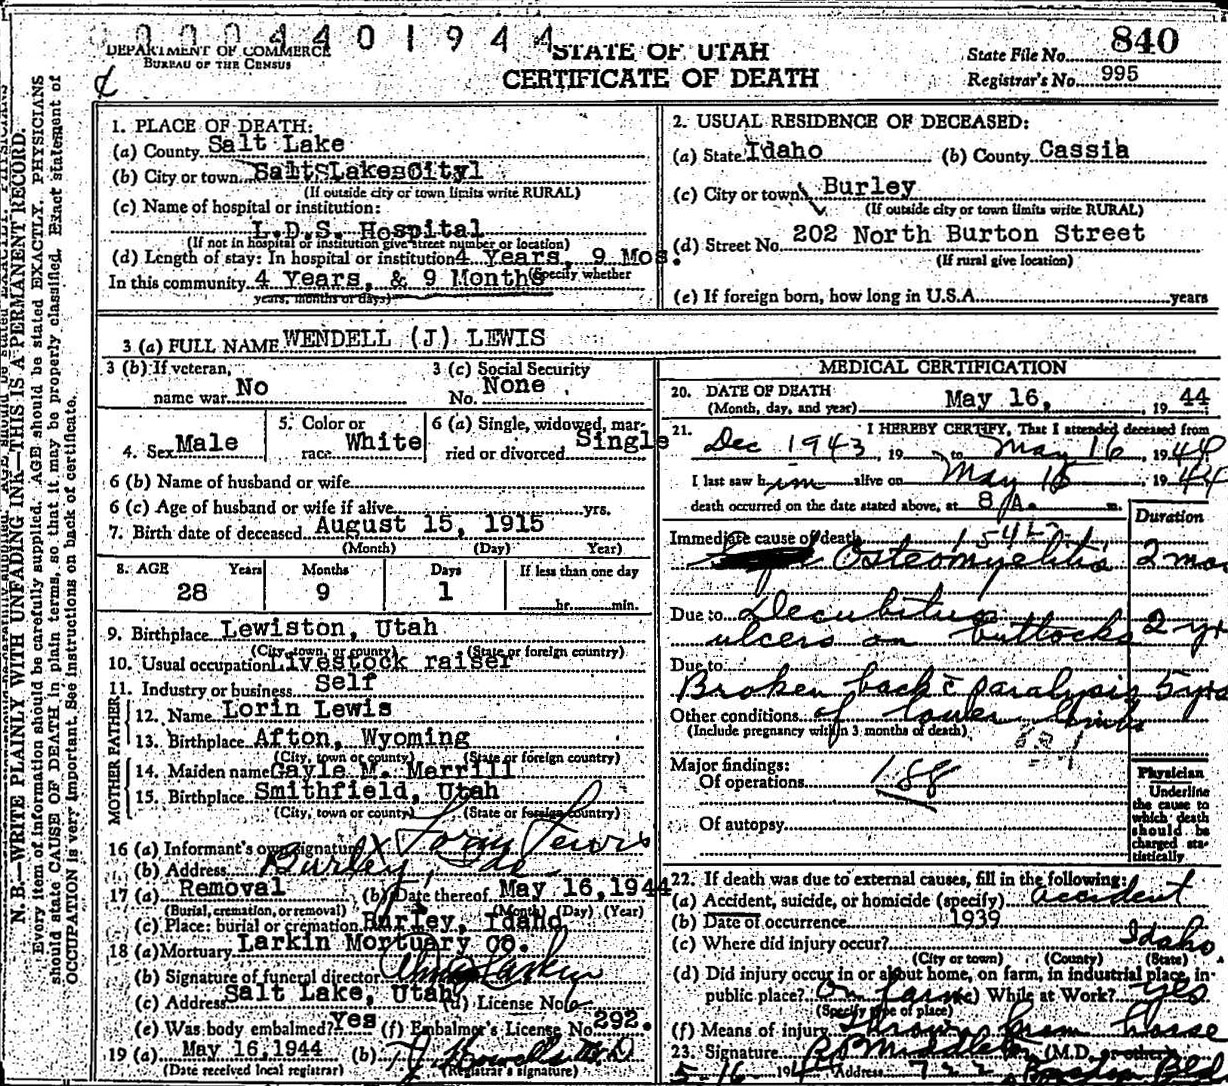 0004401944
DEPARTMENT OF COMMERCE
BUREAU OF THE CENSUS
STATE OF UTAH
CERTIFICATE OF DEATH
State File No. 840
Registrar's No. 995
N. B.—WRITE PLAINLY WITH UNFADING INK—THIS IS A PERMANENT RECORD.
Every item of information should be carefully supplied. AGE should be stated EXACTLY. PHYSICIANS
should state CAUSE OF DEATH in plain terms, so that it may be properly classified. Exact statement of
OCCUPATION is very important. See instructions on back of certificate.
1. PLACE OF DEATH:
(a) County Salt Lake
(b) City or town Salt Lake City
(If outside city or town limits write RURAL)
(c) Name of hospital or institution:
L.D.S. Hospital
(If not in hospital or institution give street number or location)
(d) Length of stay: In hospital or institution 4 Years, 9 Mos.
In this community 4 Years, & 9 Months (Specify whether
years, months or days)
2. USUAL RESIDENCE OF DECEASED:
(a) State Idaho (b) County Cassia
(c) City or town Burley
(If outside city or town limits write RURAL)
(d) Street No. 202 North Burton Street
(If rural give location)
(e) If foreign born, how long in U.S.A. years
3 (a) FULL NAME WENDELL (J) LEWIS
3 (b) If veteran, name war No
3 (c) Social Security No. None
4. Sex Male
5. Color or race White
6 (a) Single, widowed, married or divorced Single
6 (b) Name of husband or wife
6 (c) Age of husband or wife if alive yrs.
7. Birth date of deceased August 15, 1915
(Month) (Day) Year)
8. AGE Years Months Days If less than one day
28 9 1 hr. min.
9. Birthplace Lewiston, Utah
(City, town, or county) (State or foreign country)
10. Usual occupation Livestock raiser
11. Industry or business Self
FATHER
12. Name Lorin Lewis
13. Birthplace Afton, Wyoming
(City, town or county) (State or foreign country)
MOTHER
14. Maiden name Gayle M. Merrill
15. Birthplace Smithfield, Utah
(City, town or county) (State or foreign country)
16 (a) Informant's own signature X Loran Lewis
(b) Address Burley, Ida
17 (a) Removal (b) Date thereof May 16, 1944
(Burial, cremation, or removal) (Month) (Day) (Year)
(c) Place: burial or cremation Burley, Idaho
18 (a) Mortuary Larkin Mortuary Co.
(b) Signature of funeral director Larkin
(c) Address Salt Lake, Utah (d) License No. 6
(e) Was body embalmed? Yes (f) Embalmer's License No. 292.
19 (a) May 16, 1944 (b)
(Date received local registrar) (Registrar's signature)
MEDICAL CERTIFICATION
20. DATE OF DEATH
(Month, day, and year) May 16, , 19 44
21. I HEREBY CERTIFY, That I attended deceased from
Dec 1943, 19 to May 16, 1944
I last saw him alive on May 15, 1944
death occurred on the date stated above, at 8 A. m.
Duration
Immediate cause of death 154
Osteomyelitis 2 mos
Due to Decubitus
ulcers on buttocks 2 yr
Due to
Broken back c paralysis 5 yrs
Other conditions of lower limbs
(Include pregnancy within 3 months of death)
Major findings:
Of operations 188
Of autopsy
Physician
Underline
the cause to
which death
should be
charged sta-
tistically
22. If death was due to external causes, fill in the following:
(a) Accident, suicide, or homicide (specify) accident
(b) Date of occurrence 1939
(c) Where did injury occur? Idaho
(City or town) (County) (State)
(d) Did injury occur in or about home, on farm, in industrial place, in
public place? On farm (e) While at Work? yes
(Specify type of place)
(f) Means of injury Thrown from horse
23. Signature (M.D. or other)
5-16-194 Address Boston Bld